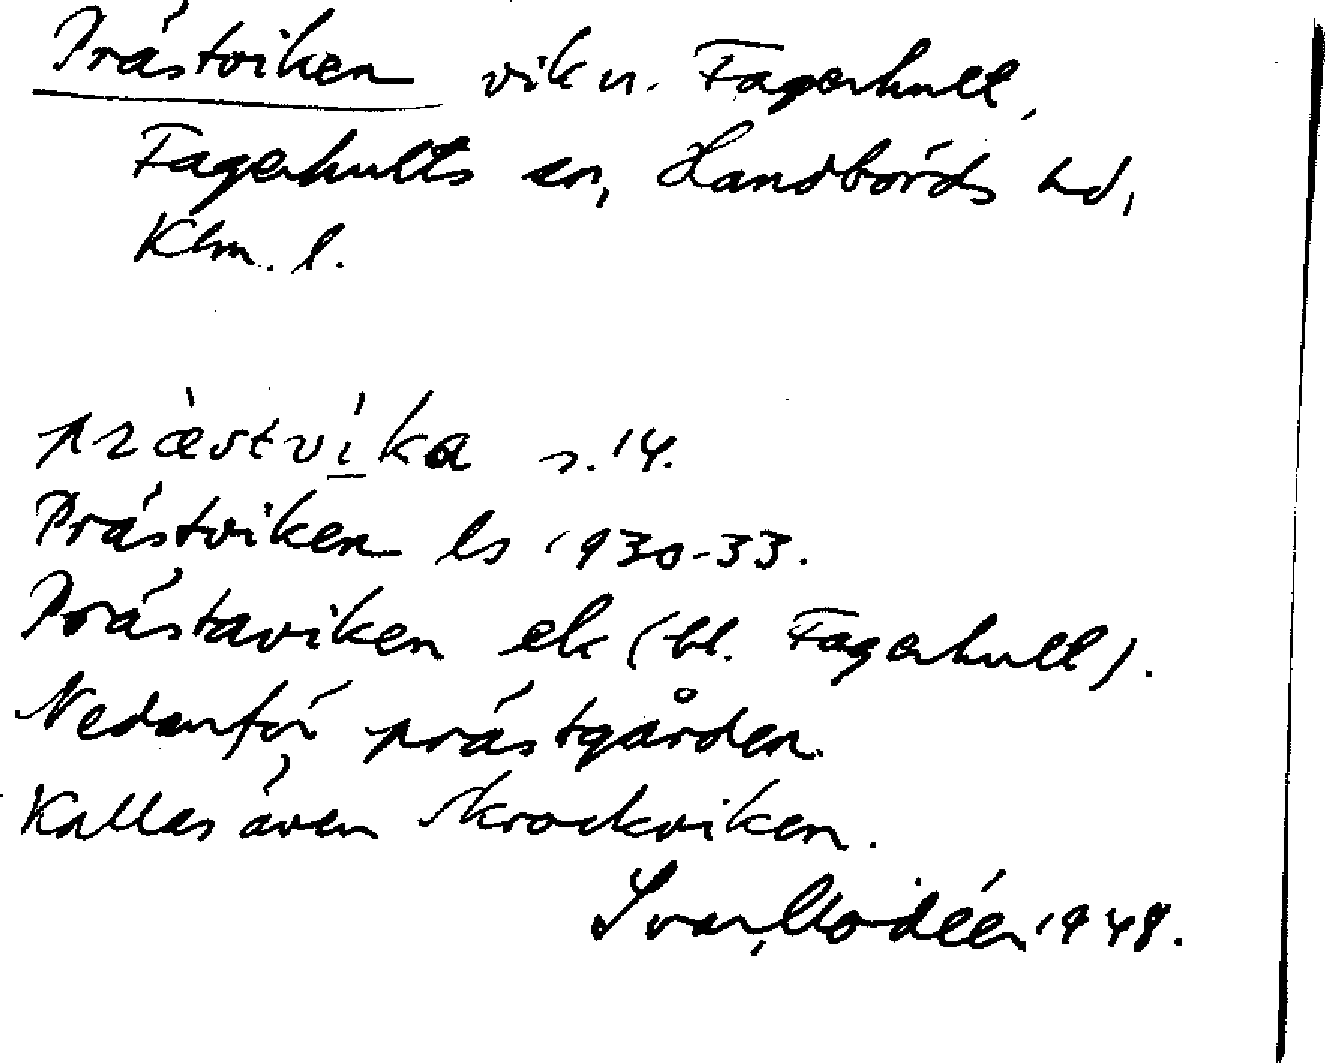 Prästviken vik n. Fagerhult,
Fagerhults sn, Handbörds hd,
Klm. l.
præ̀stvíka s. 14.
Prästviken ls 1930-33.
Prästaviken ek (bl. Fagerhult).
Nedanför prästgården.
Kallas även Krockviken.
Ivar Modéer 1948.